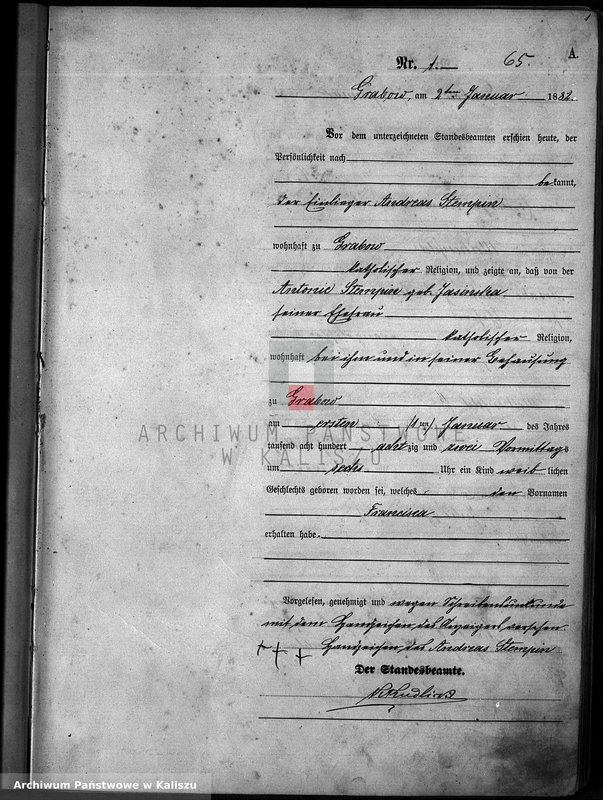 A.
Nr. 1. 65.
Grabow, am 2ten Januar 1882.
Vor dem unterzeichneten Standesbeamten erschien heute, der
Persönlichkeit nach
bekannt,
der Einlieger Andreas Stempin
wohnhaft zu Grabow
katholischer Religion, und zeigte an, daß von der
Antonie Stempin geb. Jasinska
seiner Ehefrau
katholischer Religion,
wohnhaft bei ihm und in seiner Behausung
zu Grabow
am ersten (1ten) Januar des Jahres
tausend acht hundert achtzig und zwei Vormittags
um sechs Uhr ein Kind weiblichen
Geschlechts geboren worden sei, welches den Vornamen
Francisca
erhalten habe.
Vorgelesen, genehmigt und wegen Schreibensunkunde
mit dem Handzeichen des Anzeigers versehen.
+ + + Handzeichen des Andreas Stempin
Der Standesbeamte.
ARCHIWUM PAŃSTWOWE
W KALISZU
Archiwum Państwowe w Kaliszu